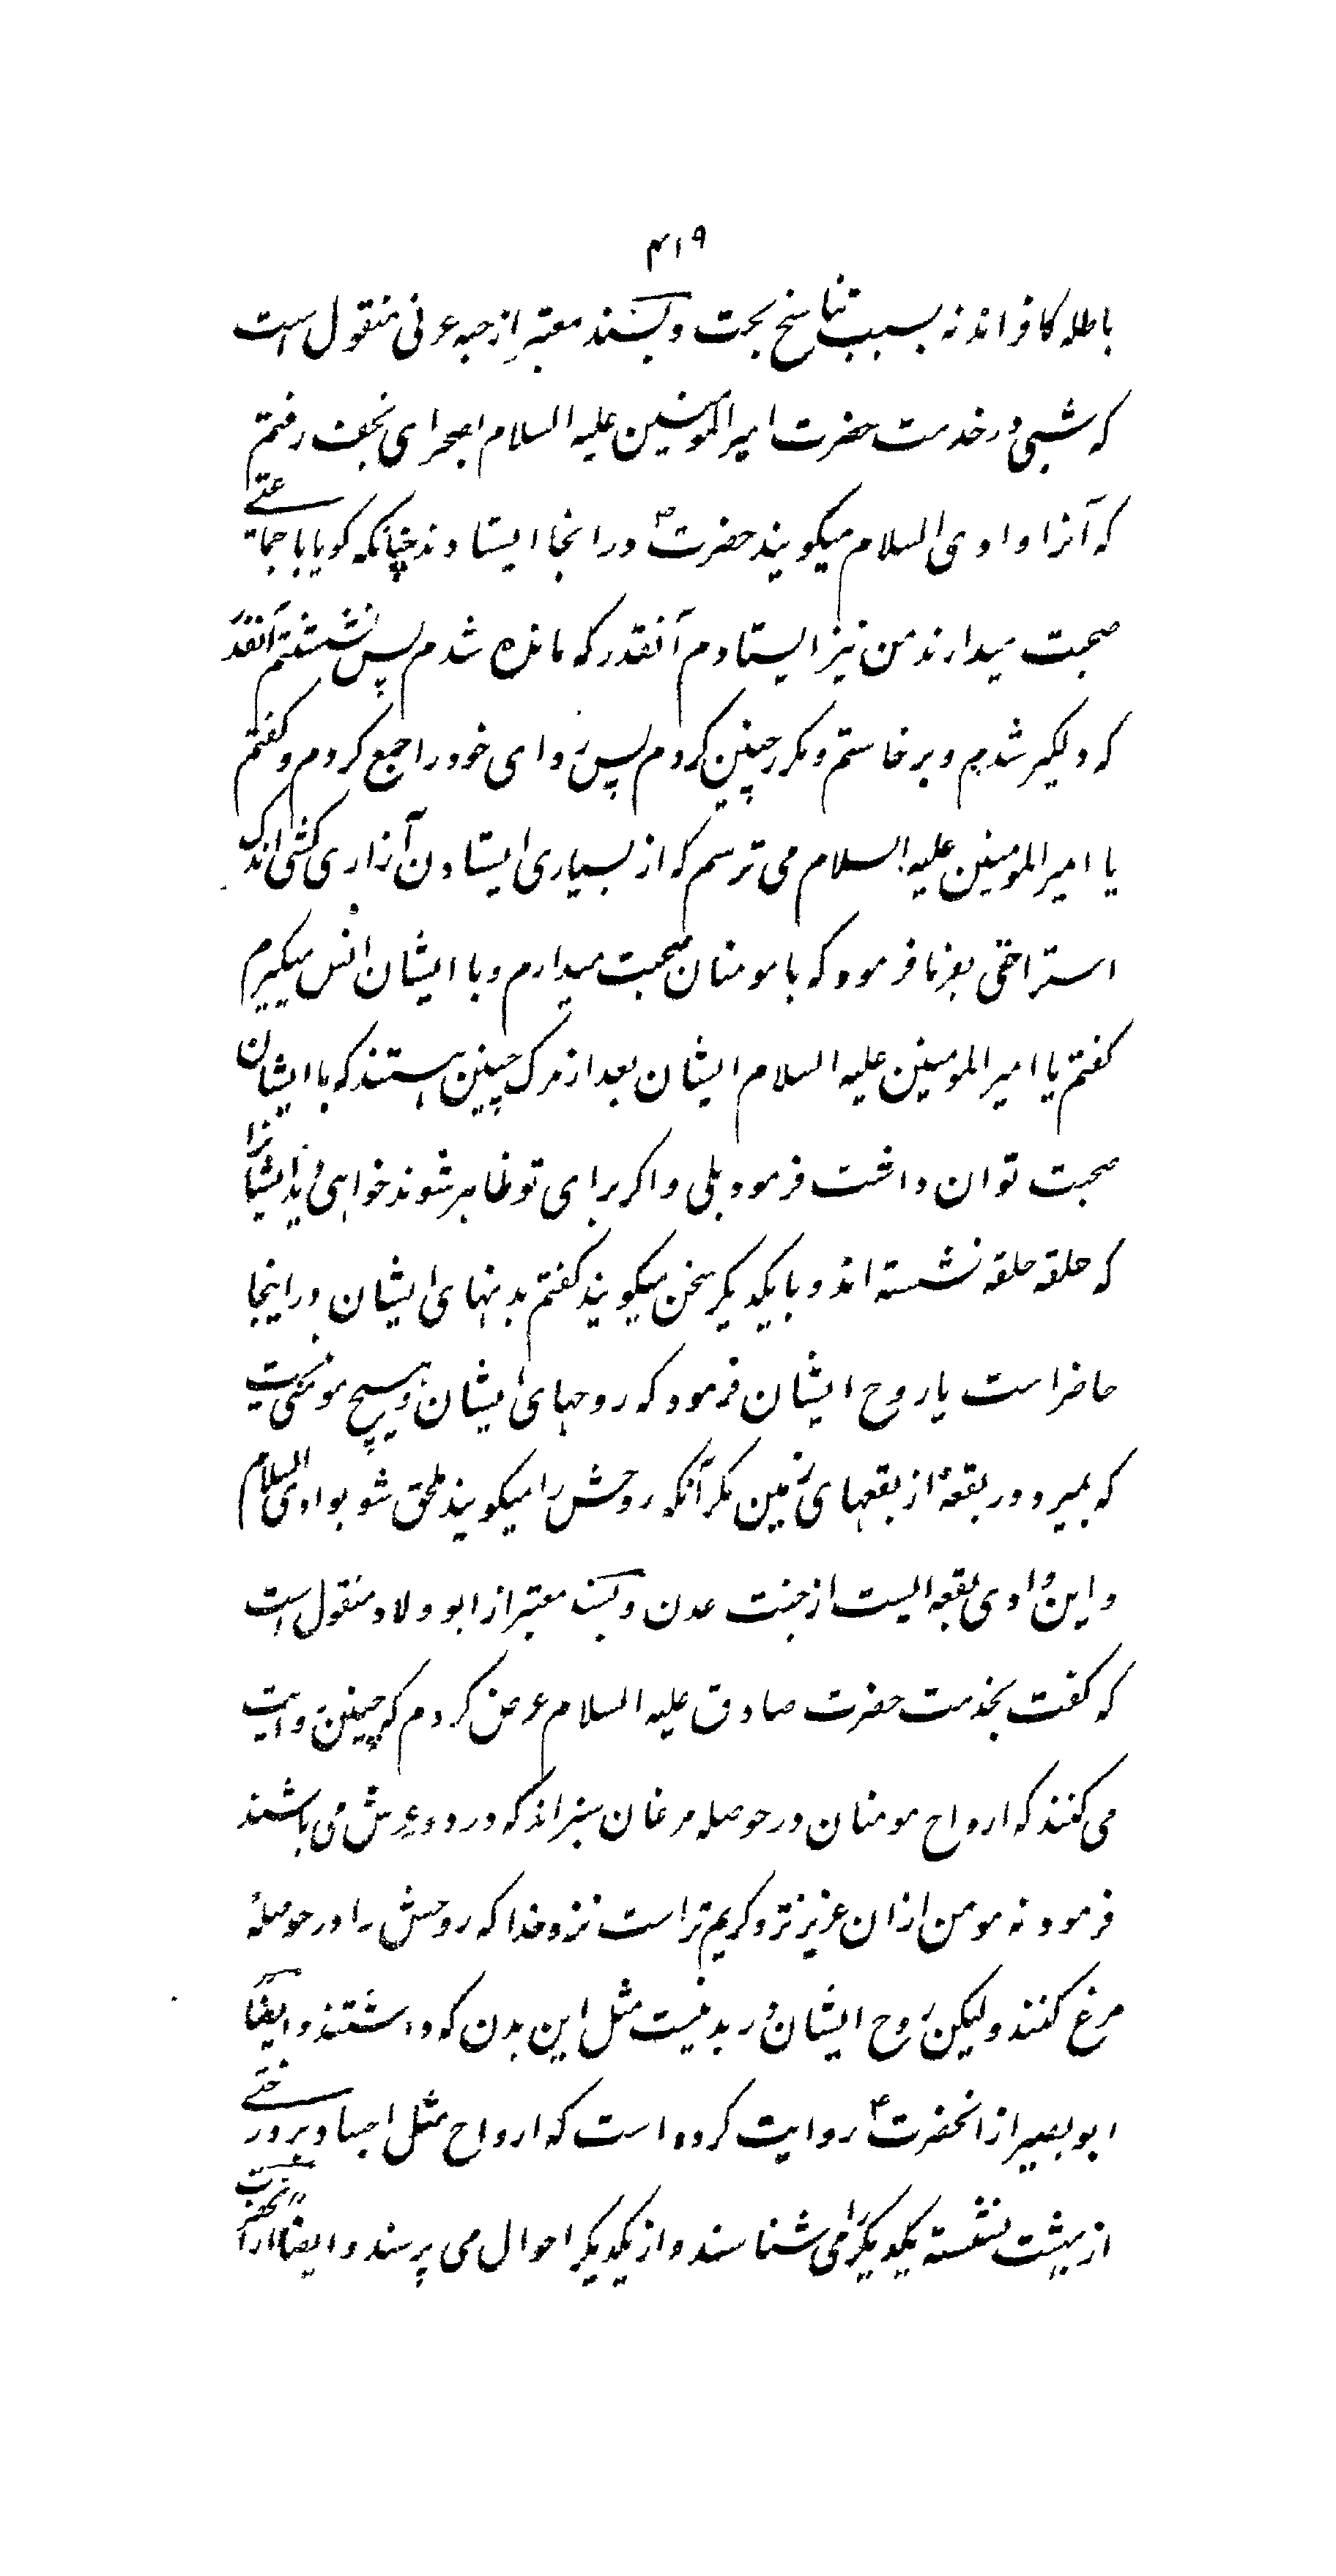 ۴۱۹
باطله کافراند نه بسبب تناسخ بحت و بسند معتبر از حبه عرنی منقول است
که شبی در خدمت حضرت امیرالمومنین علیه السلام بصحرای نجف رفتم
که آنرا وادی السلام میکویند حضرت در انجا ایستادند چنانکه کویا با جماعتی
صحبت میدارند من نیز ایستادم آنقدر که مانده شدم پس نشستم آنقدر
که دلکیر شدم و برخاستم و مکرر چنین کردم پس ردای خود را جمع کردم و کفتم
یا امیرالمومنین علیه السلام می ترسم که از بسیاری ایستادن آزاری کشی اندک
استراحتی بفرما فرمود که با مومنان صحبت میدارم و با ایشان انس میکیرم
کفتم یا امیرالمومنین علیه السلام ایشان بعد از مرک چنین هستند که با ایشان
صحبت توان داشت فرمود بلی و اکر برای تو ظاهر شوند خواهی دید ایشانرا
که حلقه حلقه نشسته اند و با یکدیکر سخن میکویند کفتم بدنهای ایشان در اینجا
حاضر است یا روح ایشان فرمود که روحهای ایشان و هیچ مومنی نیست
که بمیرد در بقعهٔ از بقعهای زمین مکر آنکه روحش را میکویند ملحق شو بوادی السلام
و این وادی بقعه ایست از جنت عدن و بسند معتبر از ابوولاد منقول است
که کفت بخدمت حضرت صادق علیه السلام عرض کردم که چنین روایت
می کنند که ارواح مومنان در حوصله مرغان سبزاند که در دور عرش می باشند
فرمود نه مومن ازان عزیزتر و کریم تر است نزد خدا که روحش را در حوصلهٔ
مرغ کنند ولیکن روح ایشان در بدنیست مثل این بدن که داشتند و ایضاً
ابوبصیر از انحضرت ع روایت کرده است که ارواح مثل اجساد بر درختی
از بهشت نشسته یکدیکر را می شناسند و از یکدیکر احوال می پرسند و ایضا از آنحضرت